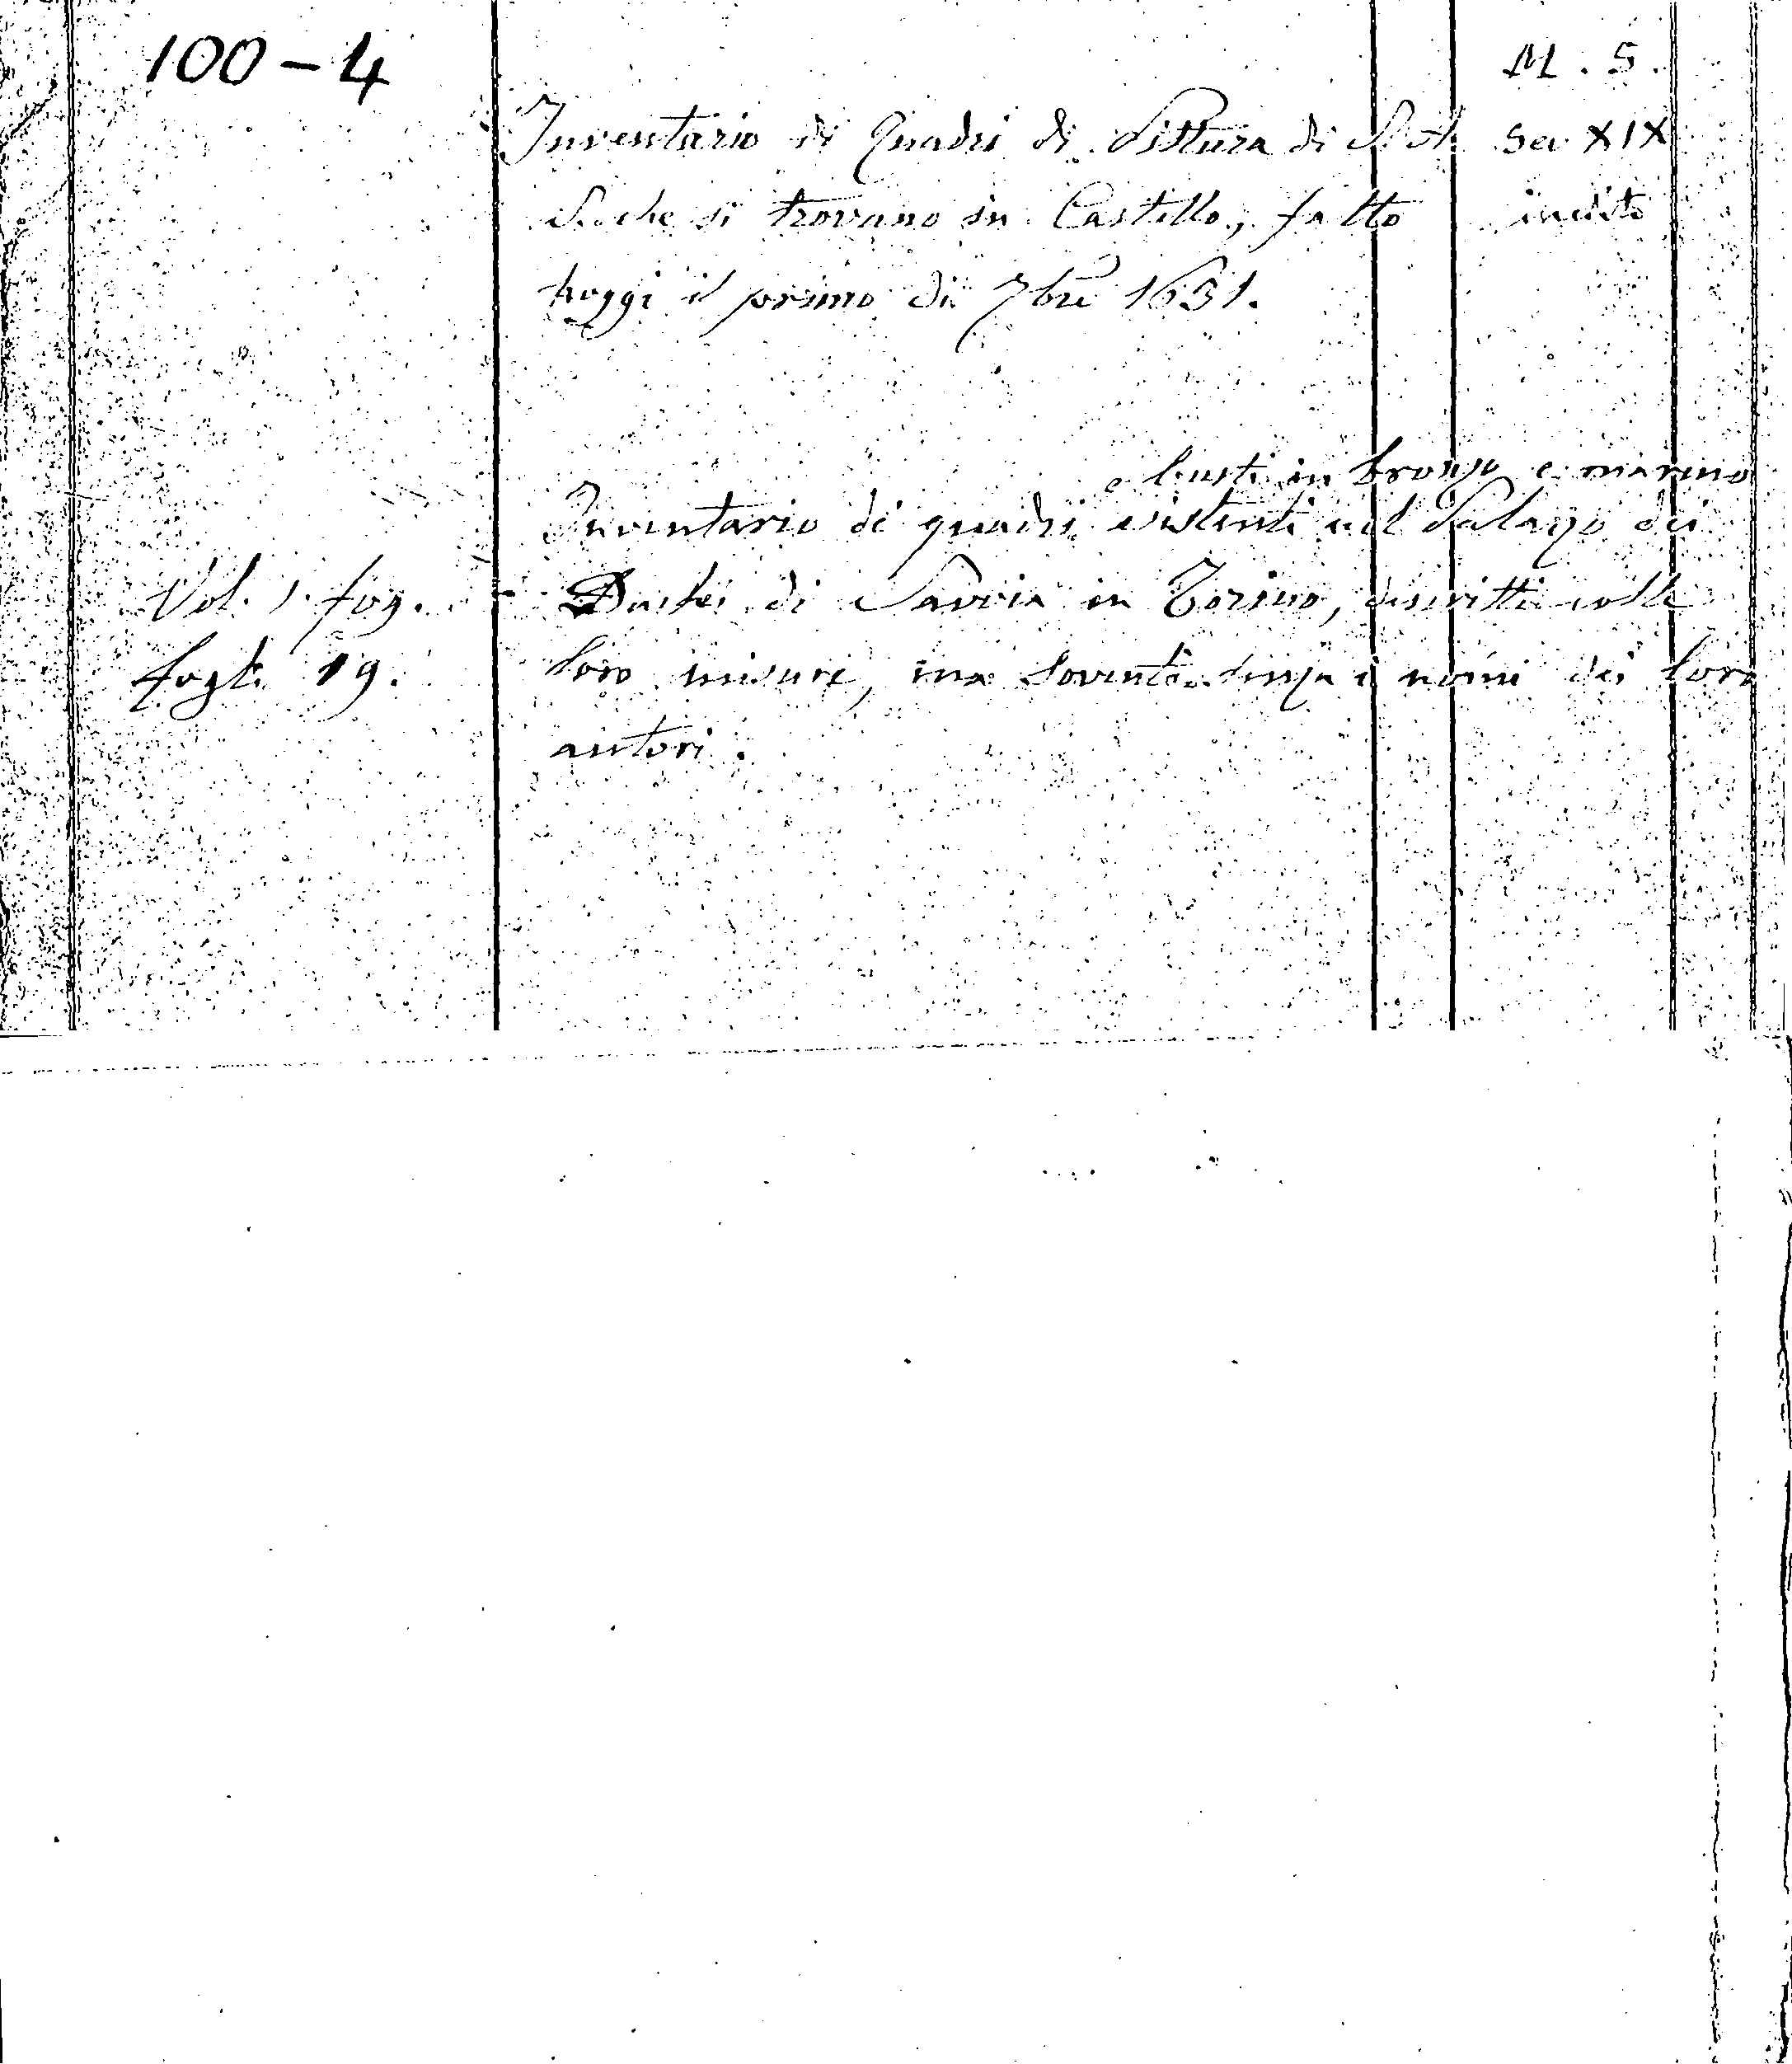 100 - 4
M. S.
Inventario di Quadri di Pittura di S. A.
Sec XIX
S. che si trovano in Castello, fatto
inedito
hoggi il primo di 7bre 1631.
e busti in bronzo e marmo
Inventario di quadri esistenti nel Palazzo dei
Vol. 1. fog.
Duchi di Savoia in Torino, descritti colle
fogli 19.
loro misure, ma sovente senza i nomi dei loro
autori.